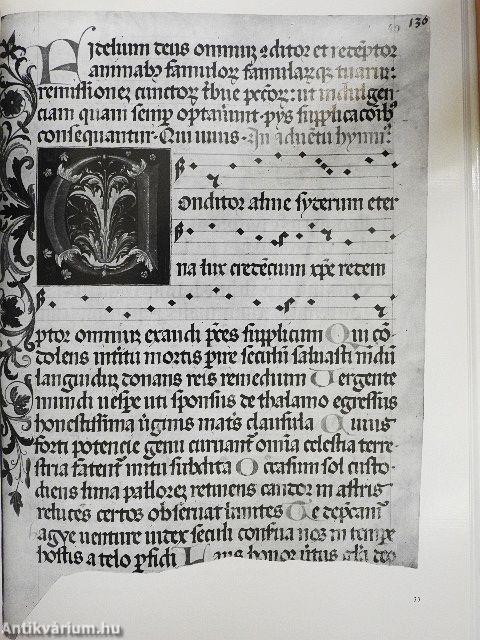 136
Fidelium deus omniuz ↄditor et redēptor
animabꝫ famuloꝝ famulaꝝqꝫ tuaruz:
remissionez cunctoꝝ tͥbue pctōꝝ: ut indulgen
ciam quam semꝑ optarunt · pijs supplicacōibꝰ
consequantur · Qui uiuis · In aduētu hymnꝰ
Conditor alme syderum eter
na lux credēcium xp̄e redem
ptor omniuz exaudi p̄ces supplicum Qui cō
dolens interitu mortis ꝑire seculū saluasti mūdū
languiduz donans reis remedium Uergente
mundi uespe uti sponsus de thalamo egressus
honestissima uirginis matris clausula Cuius
forti potencie genu curuant omnia celestia terre
stria fatentr̄ nutu subdita Occasum sol custo
diens luna palloreꝫ retinens candor in astris
relucēs certos obseruat limites Te dep̄camur
agye uenture iudex seculi conserua nos in tempore
hostis a telo ꝑfidi Laus honor uirtus gloria deo
53
Antikvárium.hu